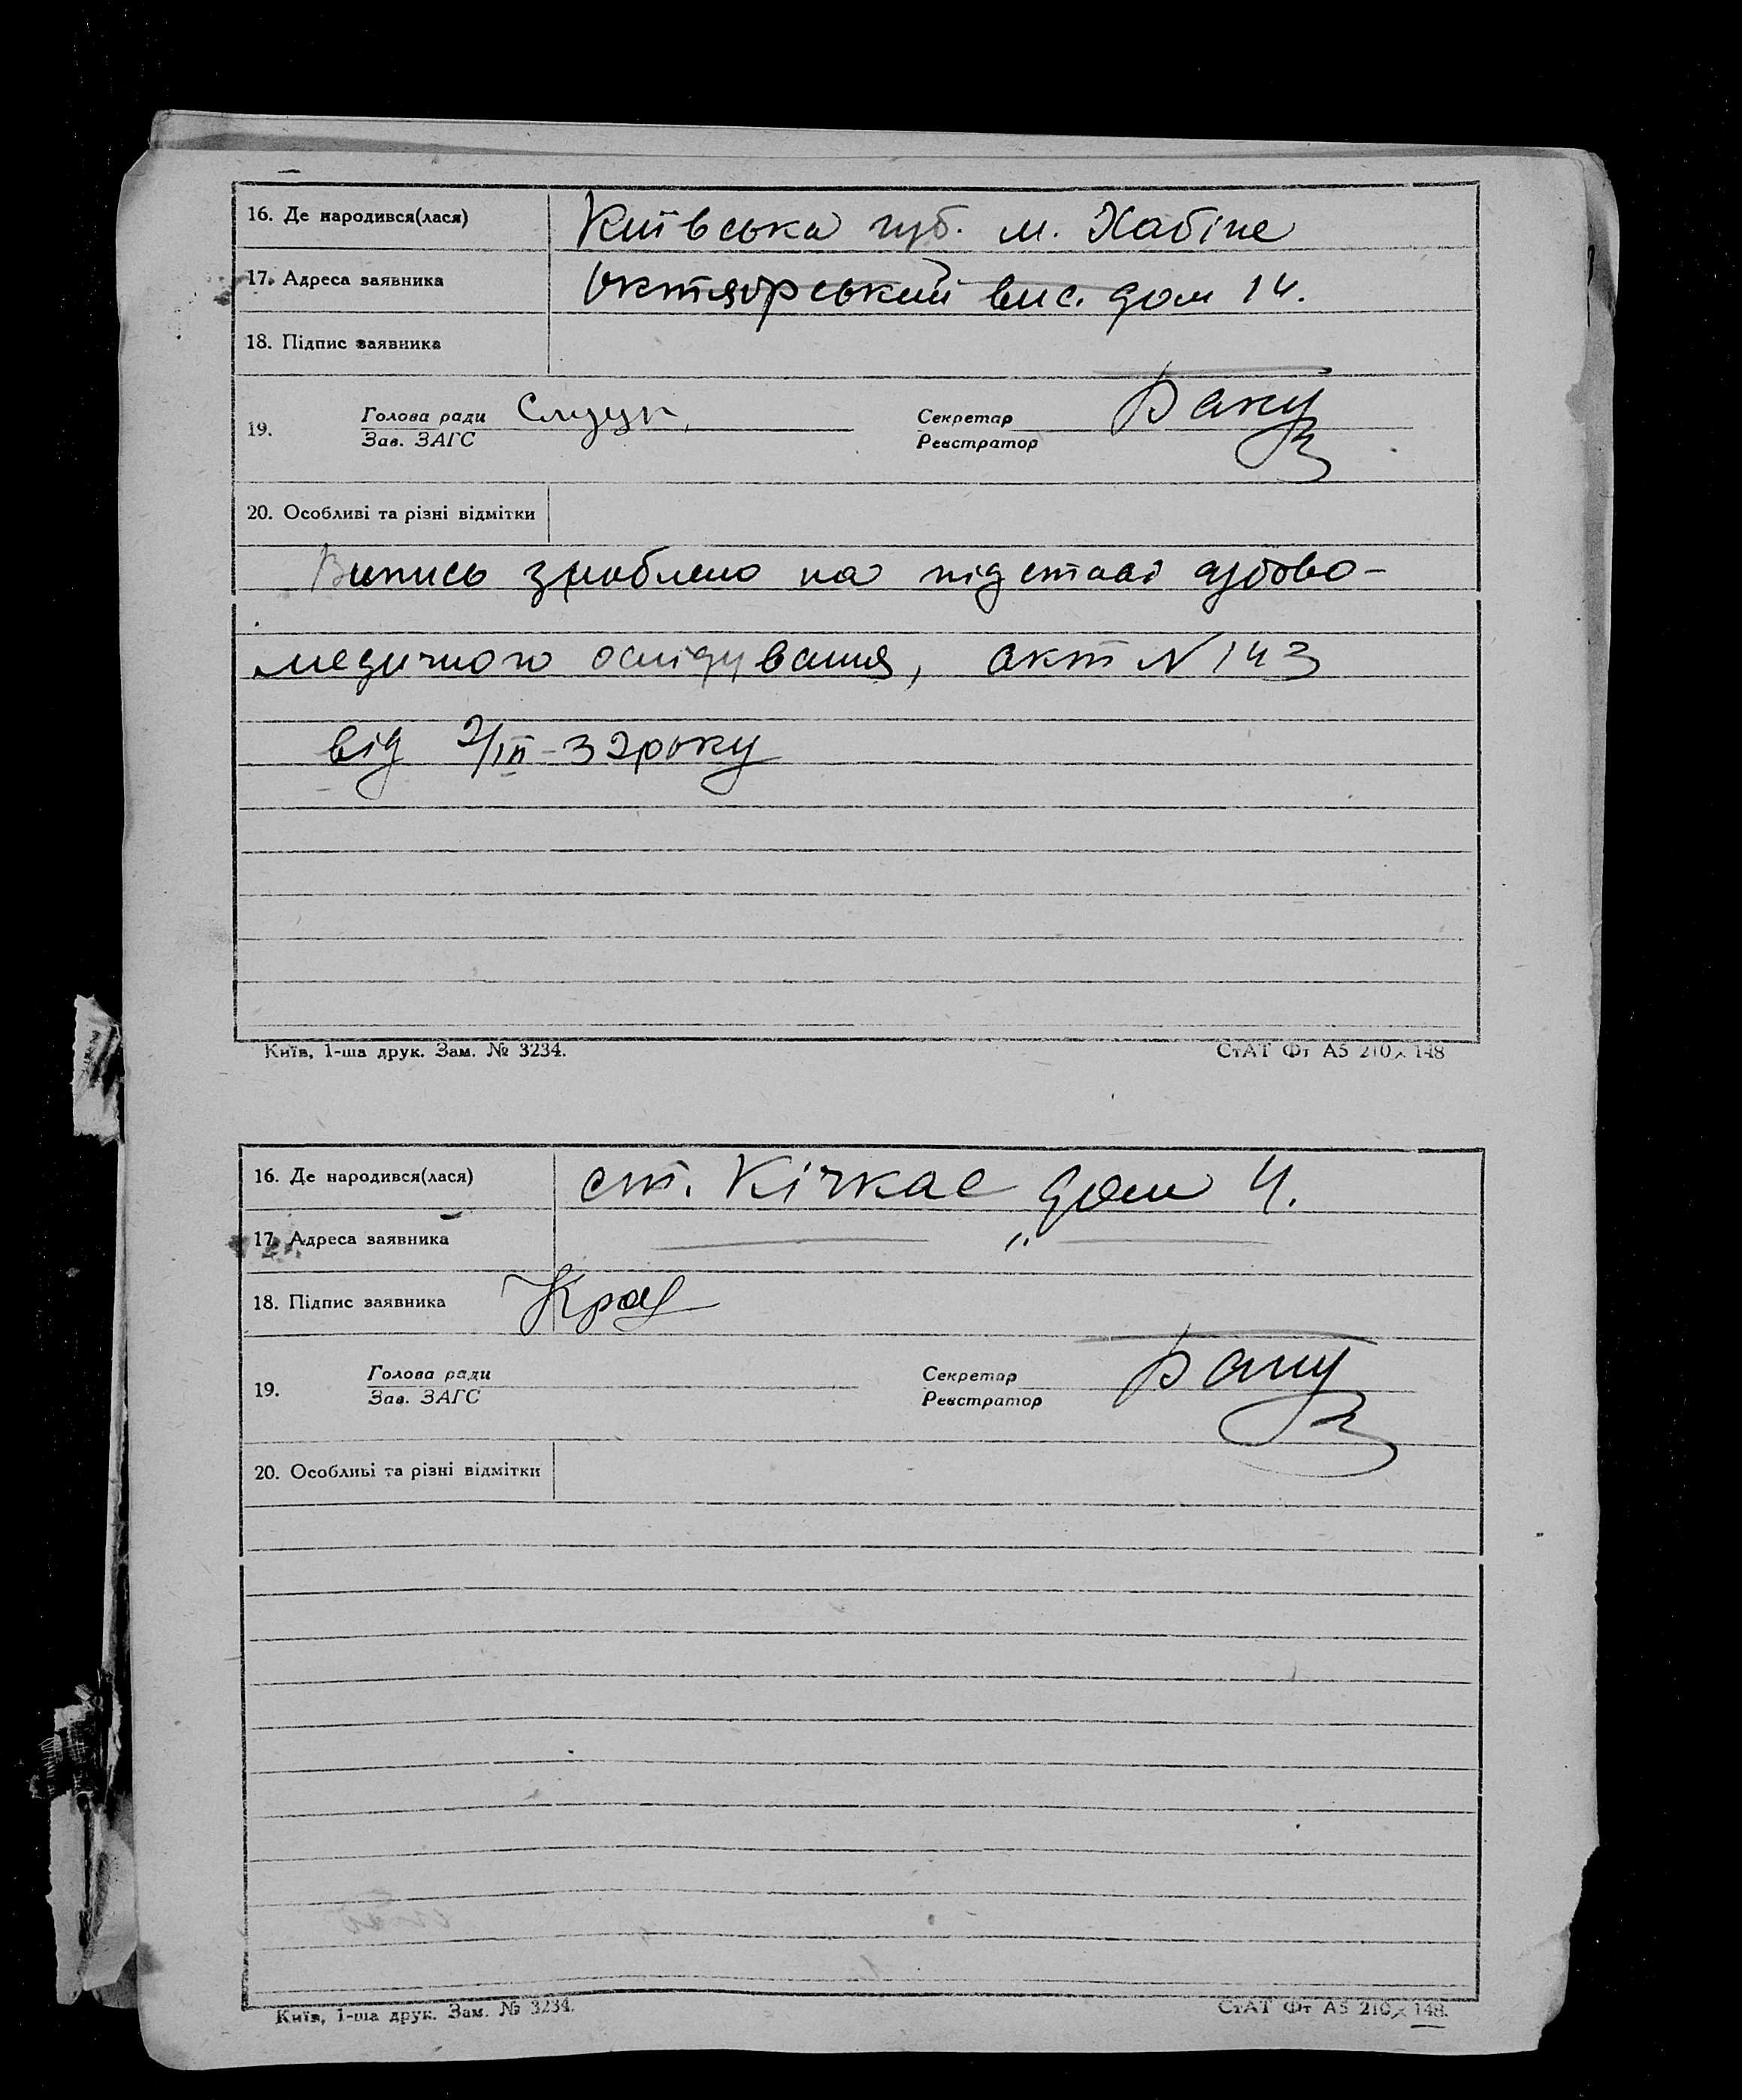 16. Де народився(лася) Київська губ. м. Хабіне
17. Адреса заявника Октябрський вис. дом 14.
18. Підпис заявника
19. Голова ради Секретар
Зав. ЗАГС Реєстратор
20. Особливі та різні відмітки
Випись зроблено на підставі судово-
медичного ослідування, акт N 143
від 2/III-32 року
Київ, 1-ша друк. Зам. № 3234. СтАТ Фт А5 210×148
16. Де народився(лася) ст. Кічкас дом 4.
17. Адреса заявника — " —
18. Підпис заявника
19. Голова ради Секретар
Зав. ЗАГС Реєстратор
20. Особливі та різні відмітки
Київ, 1-ша друк. Зам. № 3234. СтАТ Фт А5 210×148.